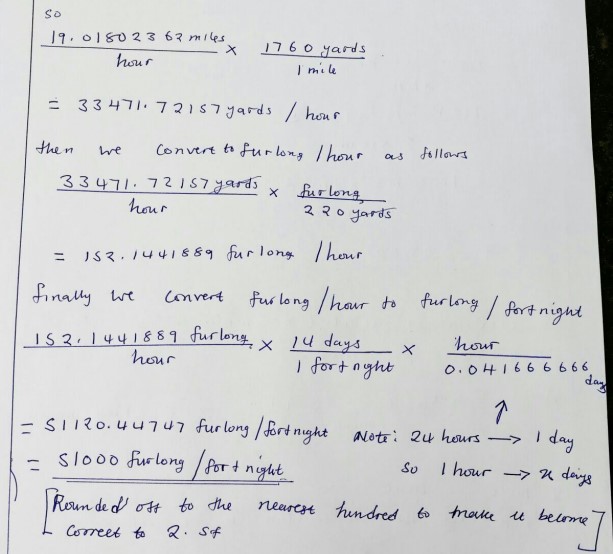 so
19.01802362 miles / hour × 1760 yards / 1 mile
= 33471.72157 yards / hour
then we convert to furlong / hour as follows
33471.72157 yards / hour × furlong / 220 yards
= 152.1441889 furlong / hour
finally we convert furlong / hour to furlong / fortnight
152.1441889 furlong / hour × 14 days / 1 fortnight × hour / 0.041666666 day
= 51120.44747 furlong / fortnight Note: 24 hours → 1 day
= 51000 furlong / fortnight so 1 hour → x days
[Rounded off to the nearest hundred to make it become
correct to 2. sf]